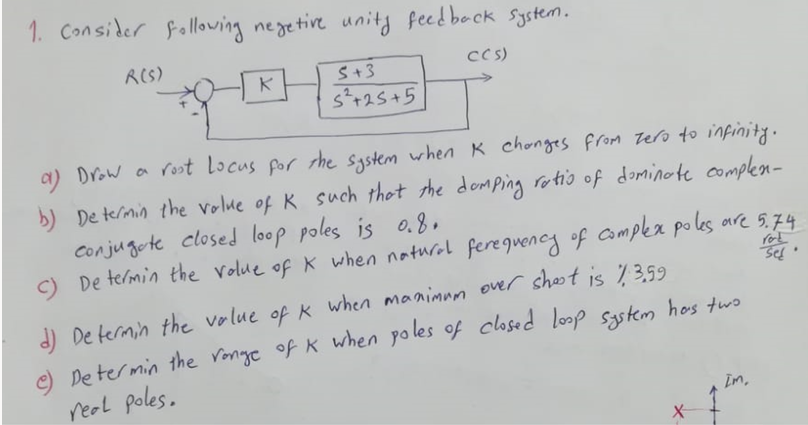 1. Consider following negetive unity feedback system.
R(S)
+
-
K
S+3
S²+2S+5
C(S)
a) Draw a root locus for the system when K changes from zero to infinity.
b) Determin the value of K such that the damping ratio of dominate complex-
conjugate closed loop poles is 0.8.
c) Determin the value of K when natural ferequency of complex poles are 5.74 rad/sec.
d) Determin the value of K when maximum over shoot is %3.99
e) Determin the range of K when poles of closed loop system has two
real poles.
Im.
X